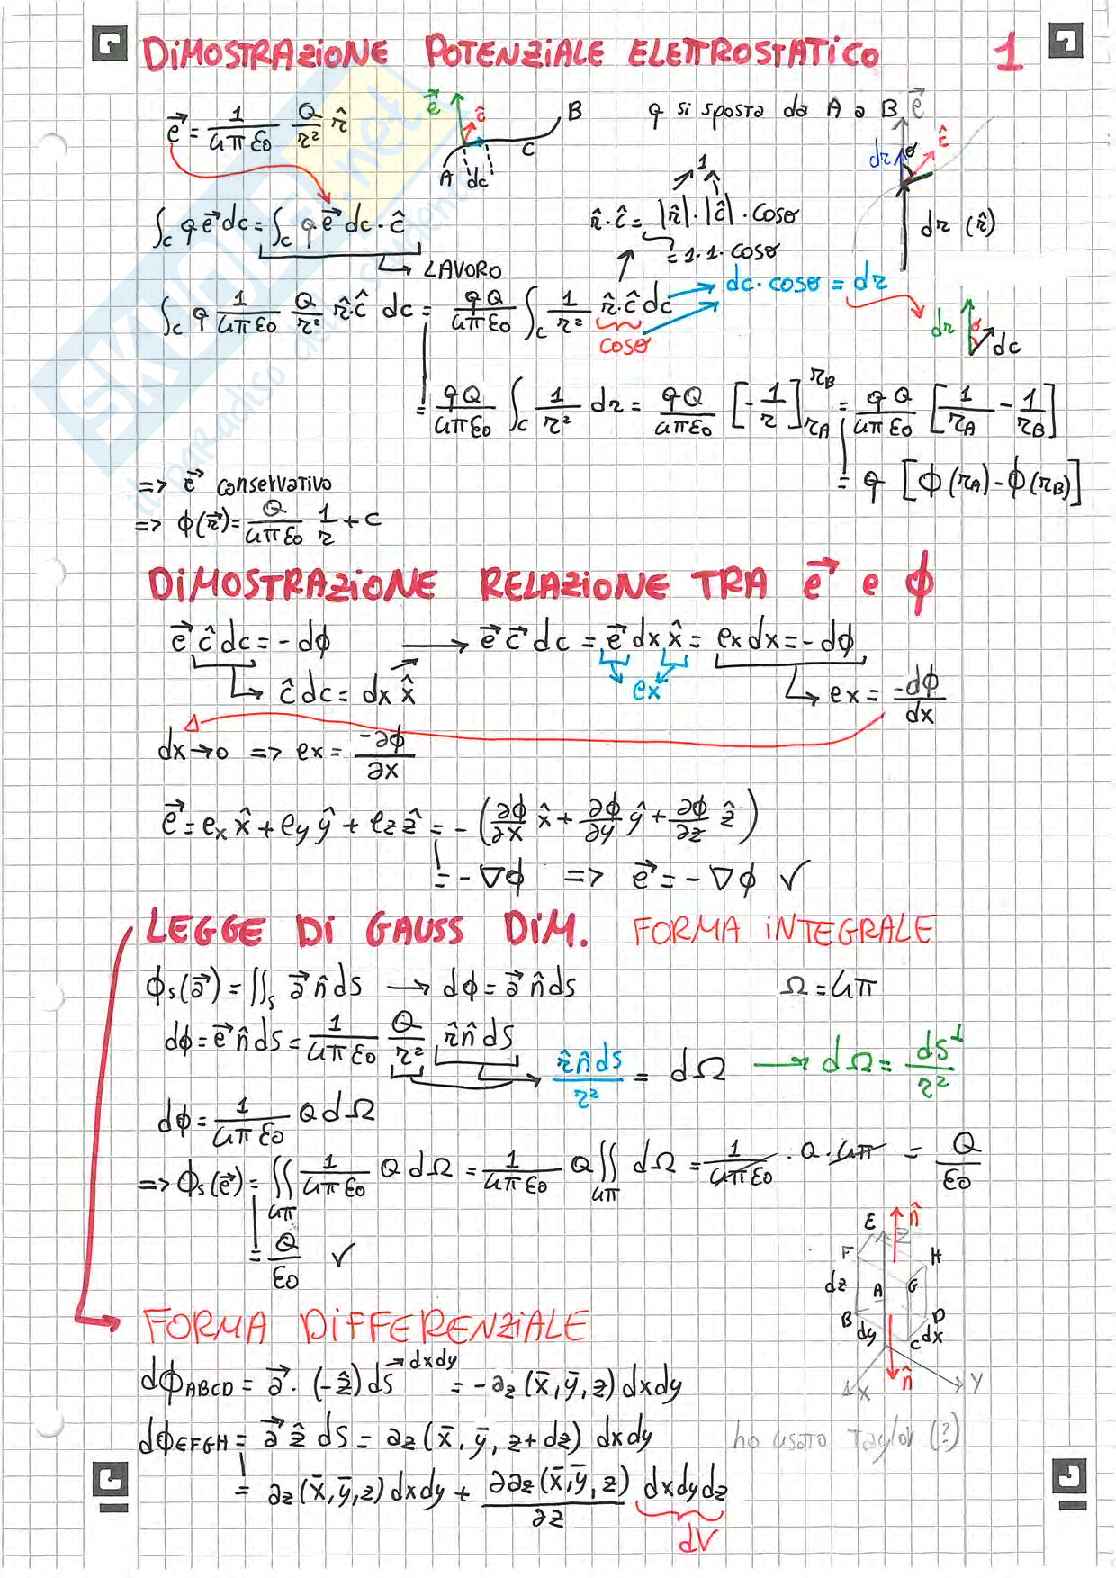 DIMOSTRAZIONE POTENZIALE ELETTROSTATICO 1
e⃗ = 1/(4πε0) Q/r² r̂
e⃗ ĉ A dc C B
q si sposta da A a B e⃗
dr θ ĉ
dr (r̂)
∫c q e⃗ dc = ∫c q e⃗ dc · ĉ
→ LAVORO
1
r̂ · ĉ = |r̂| · |ĉ| · cosθ
= 1 · 1 · cosθ
∫c q 1/(4πε0) Q/r² r̂ · ĉ dc = qQ/(4πε0) ∫c 1/r² r̂ · ĉ dc
cosθ
dc · cosθ = dr
dr θ dc
= qQ/(4πε0) ∫c 1/r² dr = qQ/(4πε0) [-1/r]rA rB = qQ/(4πε0) [1/rA - 1/rB]
= q [ϕ(rA) - ϕ(rB)]
=> e⃗ conservativo
=> ϕ(r⃗) = Q/(4πε0) 1/r + c
DIMOSTRAZIONE RELAZIONE TRA e⃗ e ϕ
e⃗ ĉ dc = -dϕ → e⃗ c⃗ dc = e⃗ dx x̂ = ex dx = -dϕ
→ ĉ dc = dx x̂
ex
→ ex = -dϕ/dx
dx → 0 => ex = -∂ϕ/∂x
e⃗ = ex x̂ + ey ŷ + ez ẑ = -(∂ϕ/∂x x̂ + ∂ϕ/∂y ŷ + ∂ϕ/∂z ẑ)
= -∇ϕ => e⃗ = -∇ϕ ✓
LEGGE DI GAUSS DIM. FORMA INTEGRALE
ϕs(a⃗) = ∬s a⃗ n̂ ds → dϕ = a⃗ n̂ ds
Ω = 4π
dϕ = e⃗ n̂ ds = 1/(4πε0) Q/r² r̂ n̂ ds
→ r̂ n̂ ds/r² = dΩ → dΩ = ds⊥/r²
dϕ = 1/(4πε0) Q dΩ
=> ϕs(e⃗) = ∬4π 1/(4πε0) Q dΩ = 1/(4πε0) Q ∬4π dΩ = 1/(4πε0) · Q · 4π = Q/ε0
= Q/ε0 ✓
E z n̂
F H
dz A G
B D
dy C dx
x n̂ y
FORMA DIFFERENZIALE
dϕABCD = a⃗ · (-ẑ) ds → dxdy = -az (x̄, ȳ, z) dxdy
dϕEFGH = a⃗ ẑ ds = az (x̄, ȳ, z+dz) dxdy
ho usato Taylor (?)
= az (x̄, ȳ, z) dxdy + ∂az (x̄, ȳ, z)/∂z dxdydz
dV
SKUOLA.net
il paradiso